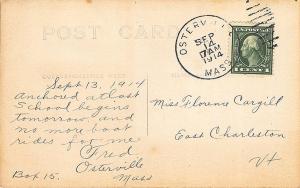 POST CARD
OSTERVILLE
SEP
14
7AM
1914
MASS.
U.S. POSTAGE
1 CENT 1
Sept 13, 1914
Anchored at last
School begins
tomorrow, and
no more boat
rides for me
Fred
Osterville
Box 15. Mass
Miss Florence Cargill
East Charleston
Vt